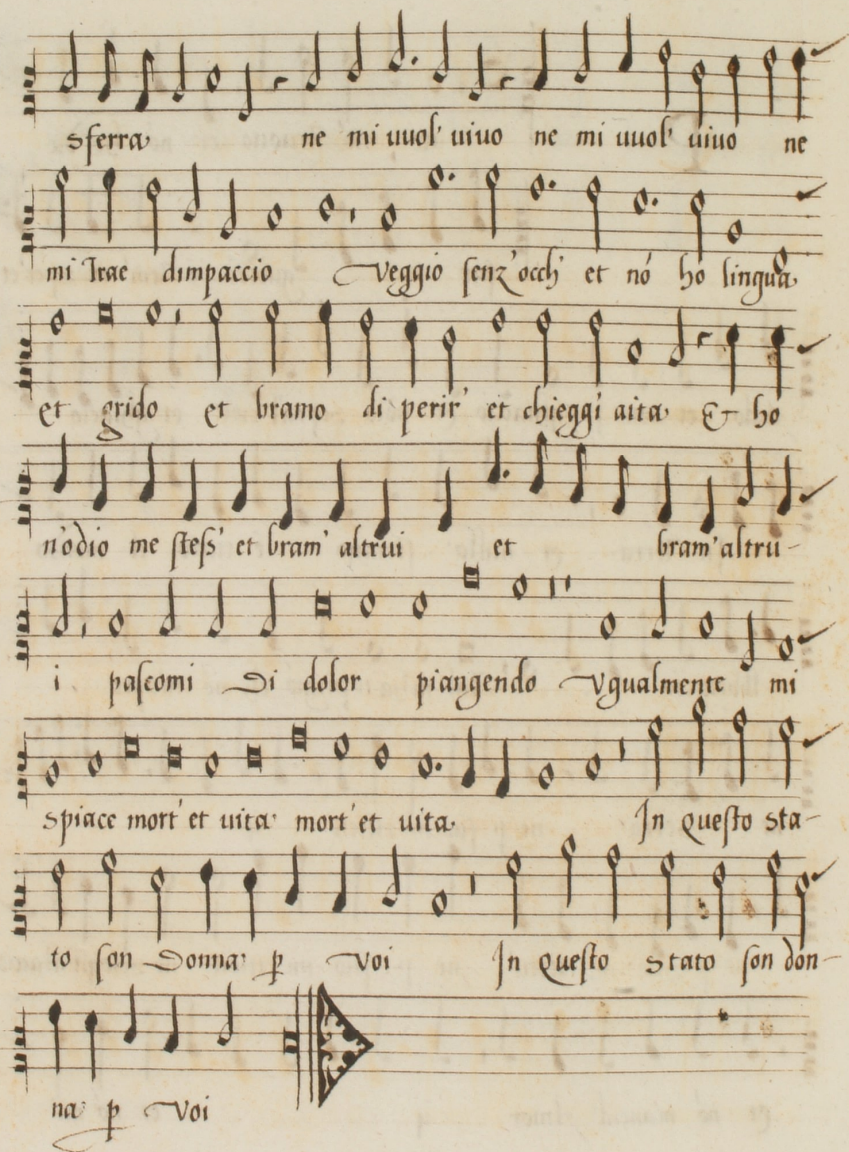 sferra ne mi vuol' vivo ne mi vuol' vivo ne
mi Trae dimpaccio Veggio senz'occh' et nó ho lingua
et grido et bramo di perir' et chieggi aita & ho
n'odio me stess' et bram' altrui et bram' altru-
i pascomi Di dolor piangendo Vgualmente mi
spiace mort' et vita mort' et vita In questo sta-
to son Donna ꝑ voi In questo stato son don-
na ꝑ voi